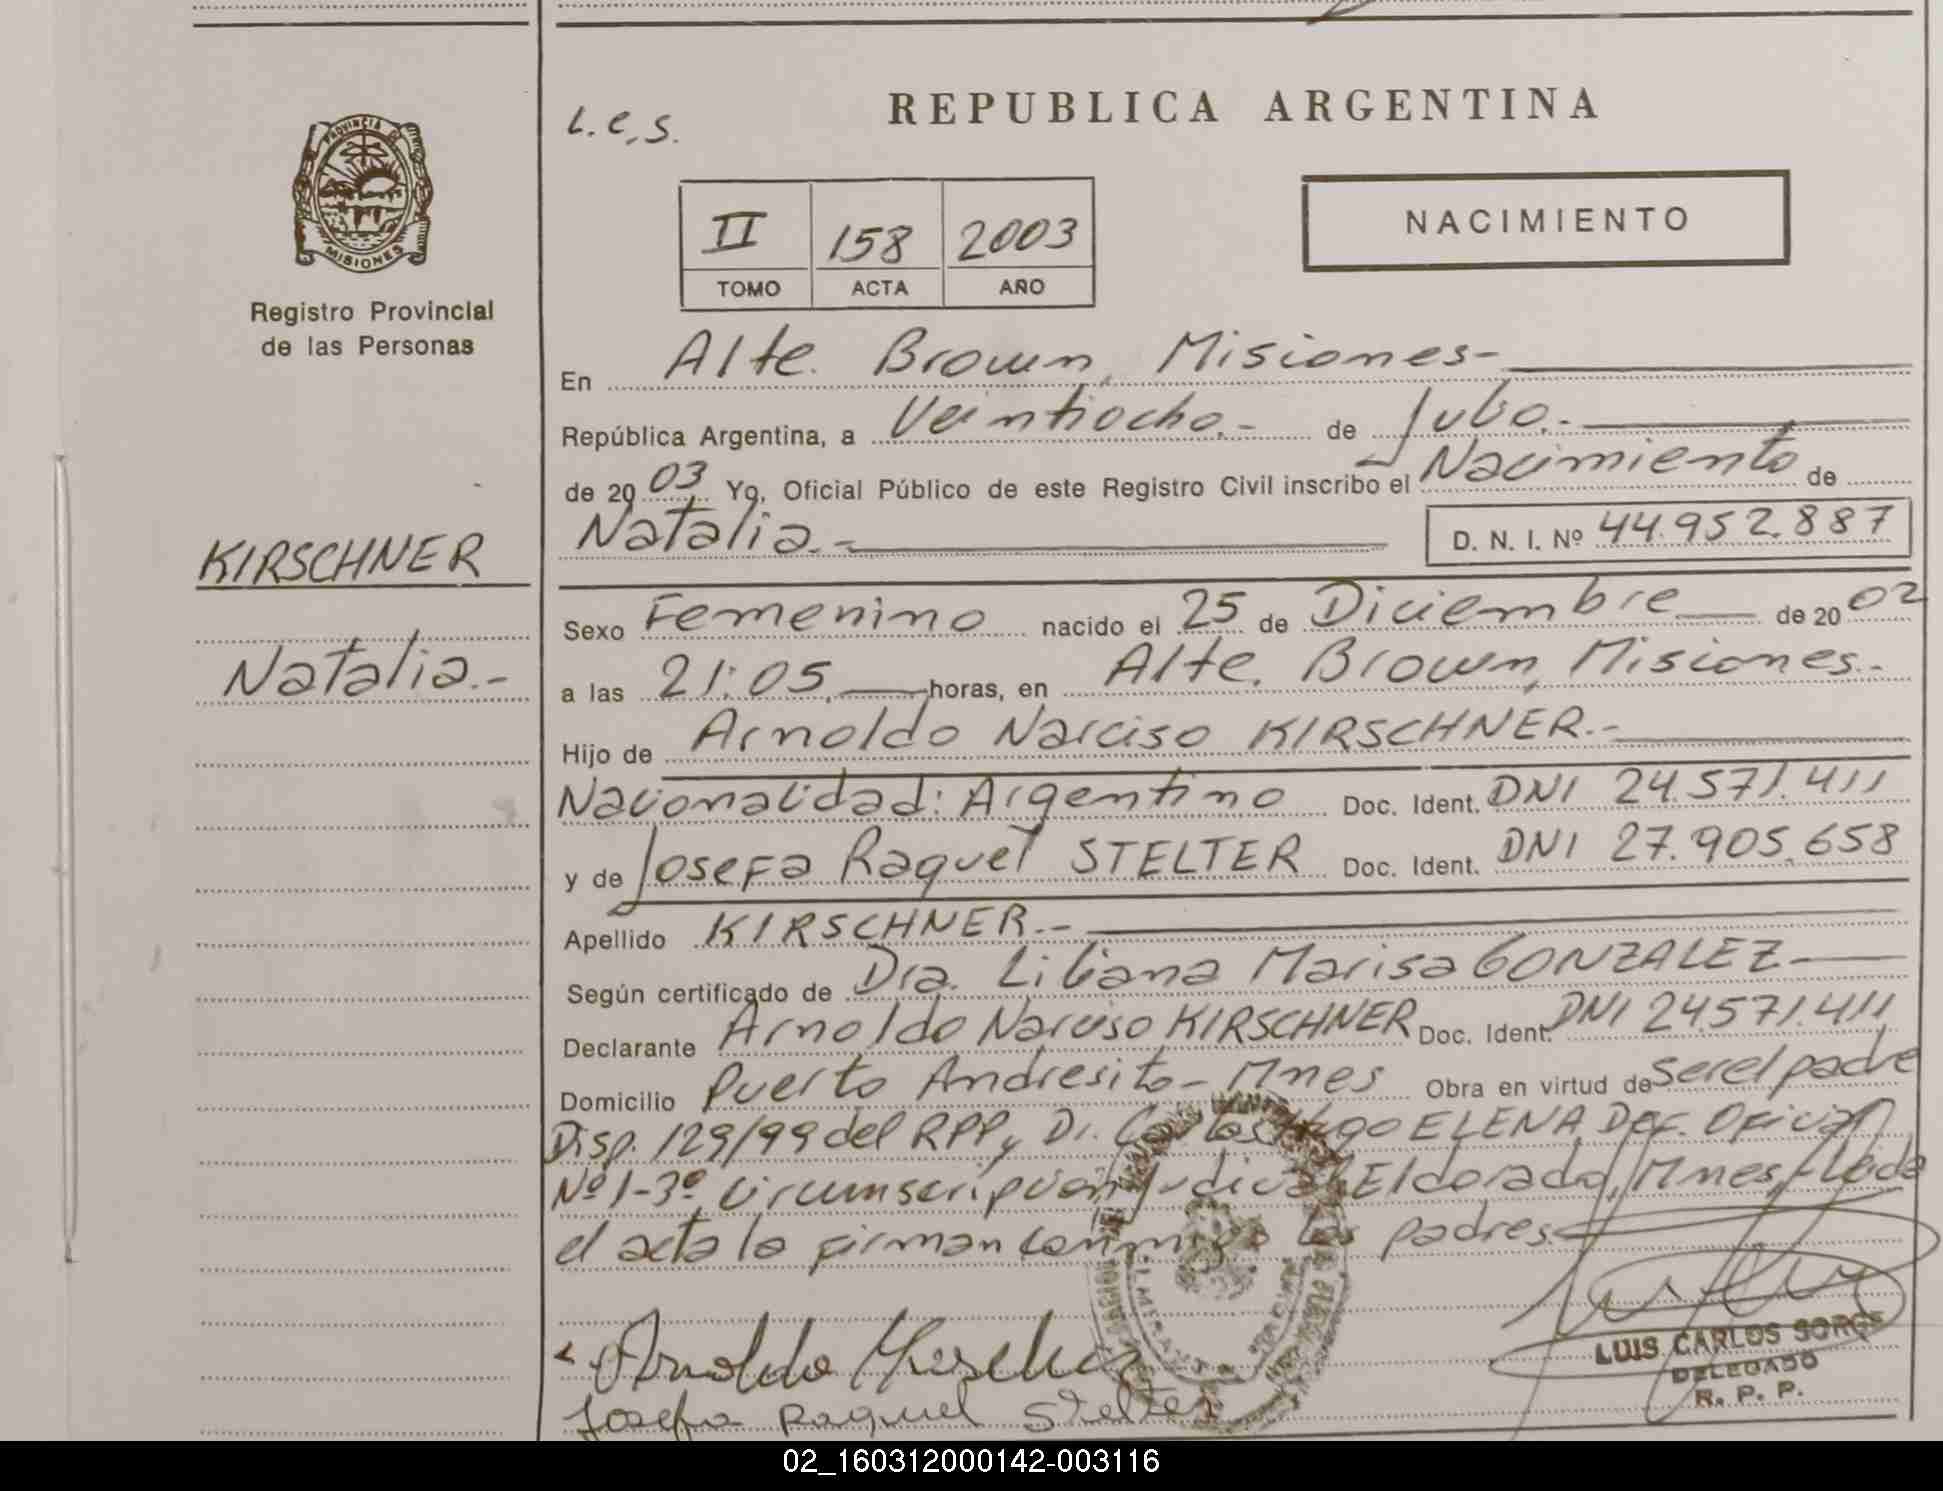 REPUBLICA ARGENTINA
L.C.S.
PROVINCIA DE
MISIONES
Registro Provincial
de las Personas
NACIMIENTO
II 158 2003
TOMO ACTA AÑO
En Alte. Brown, Misiones-
República Argentina, a Veintiocho.- de Julio.-
de 2003 Yo, Oficial Público de este Registro Civil inscribo el Nacimiento de
Natalia.- D. N. I. Nº 44.952.887
KIRSCHNER
Natalia.-
Sexo Femenino nacido el 25 de Diciembre de 2002
a las 21:05, horas, en Alte. Brown, Misiones.-
Hijo de Arnoldo Narciso KIRSCHNER.-
Nacionalidad: Argentino Doc. Ident. DNI 24.571.411
y de Josefa Raquel STELTER Doc. Ident. DNI 27.905.658
Apellido KIRSCHNER.-
Según certificado de Dra. Liliana Marisa GONZALEZ
Declarante Arnoldo Narciso KIRSCHNER Doc. Ident. DNI 24.571.411
Domicilio Puerto Andresito - Mnes Obra en virtud de ser el padre
Disp. 129/99 del RPP, Dr. Carlos ELENA, Def. Oficial
Nº 1-3º Circumscripción Judicial Eldorado, Mnes,- Leida
el acta la firman conmigo los padres
Arnoldo Kirschner
Josefa Raquel Stelter
LUIS CARLOS SORGE
DELEGADO
R. P. P.
02_160312000142-003116